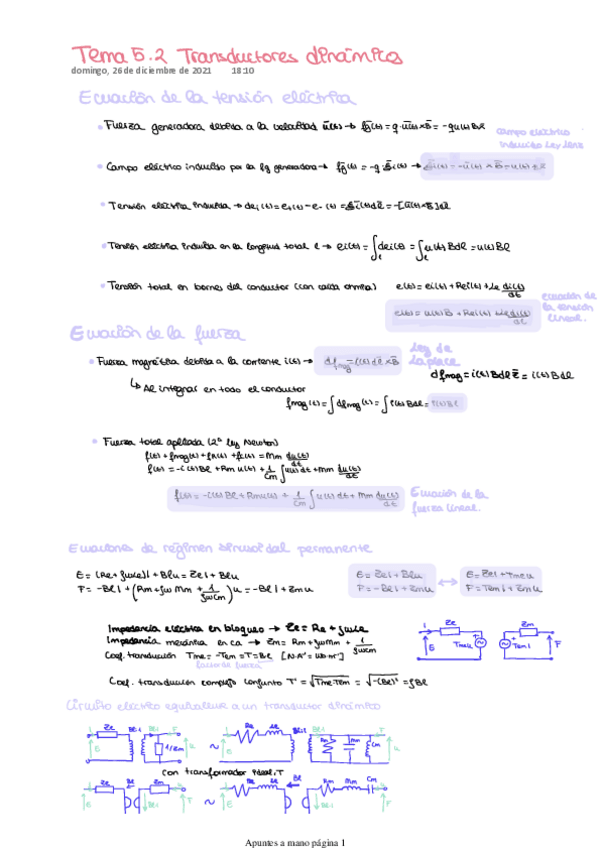 Tema 5.2 Transductores dinámicos
domingo, 26 de diciembre de 2021 18:10
Ecuación de la tensión eléctrica
• Fuerza generadora debida a la velocidad ū(t) → f̄g(t) = q·ū(t)×B̄ = -qu(t)Bℓ
campo eléctrico
inducido Ley Lenz
• Campo eléctrico inducido por la fg generadora →
• Tensión eléctrica inducida →
• Tensión eléctrica inducida en la longitud total ℓ → ei(t) = ∫ dei(t) = ∫ u(t) Bdℓ = u(t) Bℓ
• Tensión total en bornes del conductor (con caída óhmica) e(t) = ei(t) + Rei(t) + Le di(t)/dt
ecuación de
la tensión
lineal.
Ecuación de la fuerza
Ley de
Laplace
• Fuerza magnética debida a la corriente i(t) → df̄mag = i(t) dℓ̄ × B̄
↳ Al integrar en todo el conductor
fmag(t) = ∫ dfmag(t) = ∫ i(t) Bdℓ = i(t) Bℓ
• Fuerza total aplicada (2ª ley Newton)
f(t) = -i(t) Bℓ + Rm u(t) + 1/Cm ∫ u(t) dt + Mm du(t)/dt
f(t) = -i(t) Bℓ + Rm u(t) + 1/Cm ∫ u(t) dt + Mm du(t)/dt
Ecuación de la
fuerza lineal.
Ecuaciones de régimen sinusoidal permanente
E = (Re + jωLe) i + Bℓu = Ze i + Bℓu
F = -Bℓ i + (Rm + jωMm + 1/jωCm) u = -Bℓ i + Zm u
E = Ze i + Bℓu
F = -Bℓ i + Zm u
↔
E = Ze i + Tme u
F = Tem i + Zm u
Impedancia eléctrica en bloqueo → Ze = Re + jωLe
Impedancia mecánica en ca → Zm = Rm + jωMm + 1/jωCm
Coef. transducción Tme = -Tem = T = Bℓ
factor de fuerza
Coef. transducción complejo conjunto T' = √(Tme·Tem) = √(-(Bℓ)²) = jBℓ
i Ze Zm E Tme u Tem i F
Circuito eléctrico equivalente a un transductor dinámico
i Ze Bℓ:1 F E 1/Zm u ~ Re Le Bℓ:1 Rm Mm Cm
con transformador ideal T
Ze Bℓ Zm E F ~ Re Le Bℓ Rm Mm Cm E F
Apuntes a mano página 1